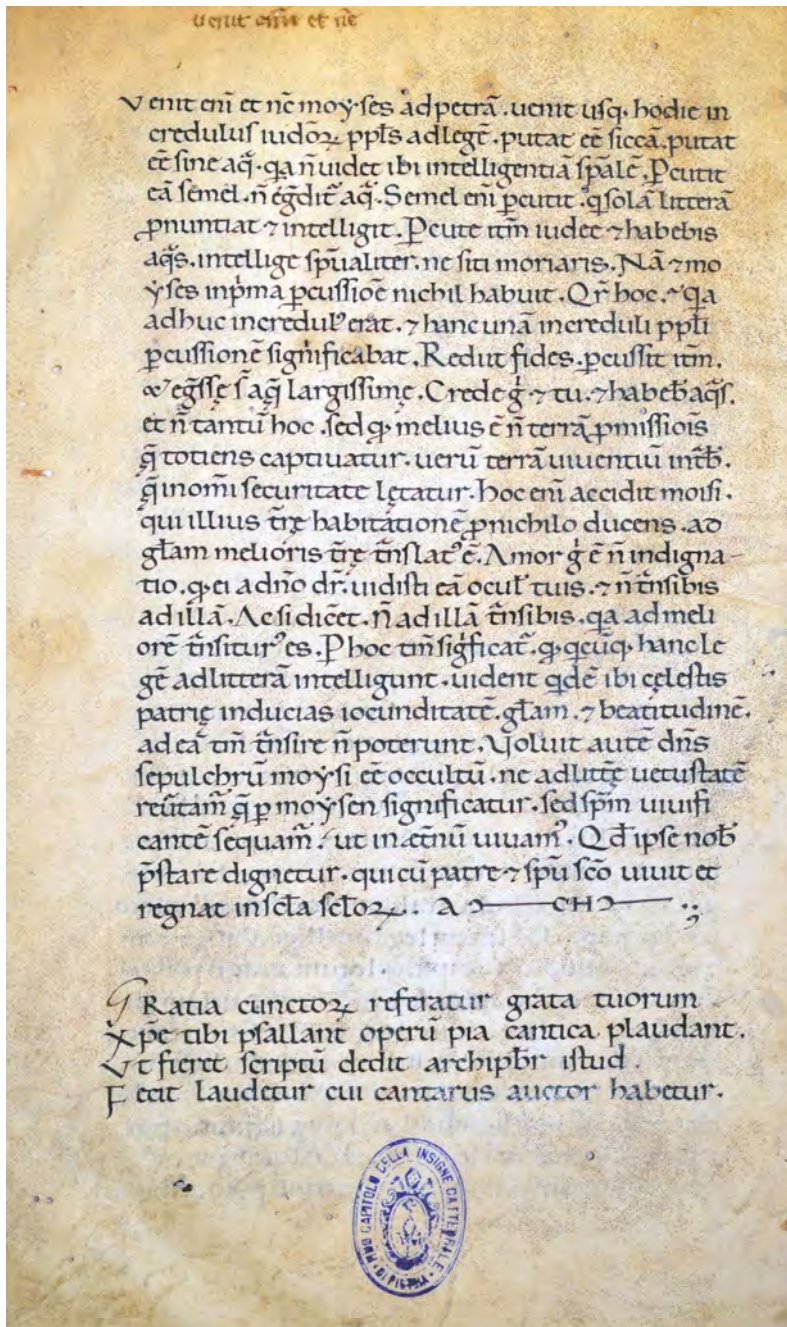 uenit eni͞ et nc̄
Venit eni͞ et nc̄ moẏ·ses ad petrā . uenit usq; hodie in
credulus iudōꝝ pp̄ls ad legē . putat eē siccā . putat
eē sine aq̄ . qa n̄ uidet ibi intelligentiā sp̄alē . Pcutit
eā semel . n̄ eḡdit᷑ aq̄ . Semel eni͞ ꝑcutit . q solā litterā
ꝓnuntiat ⁊ intelligit . Pcute itm̄ iudee ⁊ habebis
aqͣs . intellige sp̄ualiter . ne siti moriaris . Nā ⁊ mo
ẏses in pͥma ꝑcussiōe nichil habuit . Qr̄ hoc . qa
adhuc incredulꝰ erat . ⁊ hanc unā increduli pp̄li
ꝑcussionē significabat . Rediit fides . ꝑcussit itm̄ .
⁊ eḡsse s̄ aq̄ largissimę . Crede gͥ ⁊ tu . ⁊ habeb̄ aqͣs .
et n̄ tantū hoc . sed qꝫ melius ē n̄ terrā ꝓmissiois̄
q̄ totiens captiuatur . uerū terrā uiuentiū int̄b̄ .
q̄ in omi͞ securitate lętatur . hoc eni͞ accidit moisi .
qui illius tr̄ę habitationē ꝓ nichilo ducens . ad
gl̄am melioris tr̄ę tn̄slatꝰ ē . Amor gͥ ē n̄ indigna-
tio . qꝫ ei a dn̄o dr̄ . uidisti eā ocul̄ tuis . ⁊ n̄ tn̄sibis
ad illā . Ac si dic̄et . n̄ ad illā tn̄sibis . qa ad meli
orē tn̄siturꝰ es . P hoc tm̄ sigͥficat᷑ . qꝫ qcūqꝫ hanc le
gē ad litterā intelligunt . uident qdē ibi cęlestis
patrię inducias iocunditatē . gl̄am . ⁊ beatitudinē .
ad eā tm̄ tn̄sire n̄ poterunt . Voluit autē dn̄s
sepulchrū moẏsi eē occultū . ne ad litt̄ę uetustatē
reūtam᷑ q̄ ꝑ moẏsen significatur . sed sp̄m uiuifi
cantē sequam᷑ . ut in æt̄nū uiuamꝰ . Qd̄ ipse nob̄
p̄stare dignetur . qui cū patre ⁊ sp̄u sc̄o uiuit et
regnat in sc̄la sc̄loꝝ .
GRatia cunctoꝝ referatur grata tuorum
Xp̄e tibi psallant operū pia cantica plaudant .
Vt fieret scriptū dedit archipb̄r istud .
Fecit laudetur cui cantarus auctor habetur .